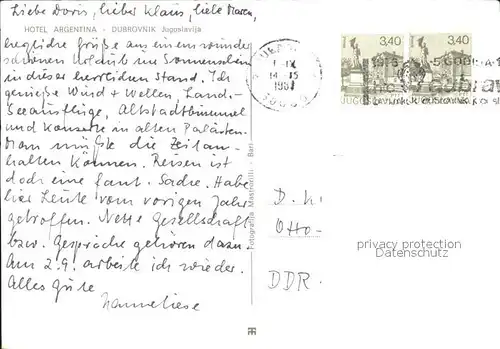 Liebe Doris, lieber Klaus, liebe Maren,
HOTEL ARGENTINA - DUBROVNIK Jugoslavija
herzliche Grüße aus einem wunder
schönen Urlaub im Sonnenschein
in dieser herrlichen Stand. Ich
genieße Wind + Wellen, Land-
Seeausflüge, Altstadtbummel
und Konzerte in alten Palästen.
Man müßte die Zeit an-
halten können. Reisen ist
doch eine fant. Sache. Habe
hier Leute vom vorigen Jahr
getroffen. Nette Gesellschaft
bzw. Gespräche gehören dazu.
Am 2.9. arbeite ich wieder.
Alles Gute
Hanneliese
Fotografia Mastrolilli - Bari
14-15
3,40
3,40
JUGOS
D. H.
Otto-
privacy protection
Datenschutz
DDR.